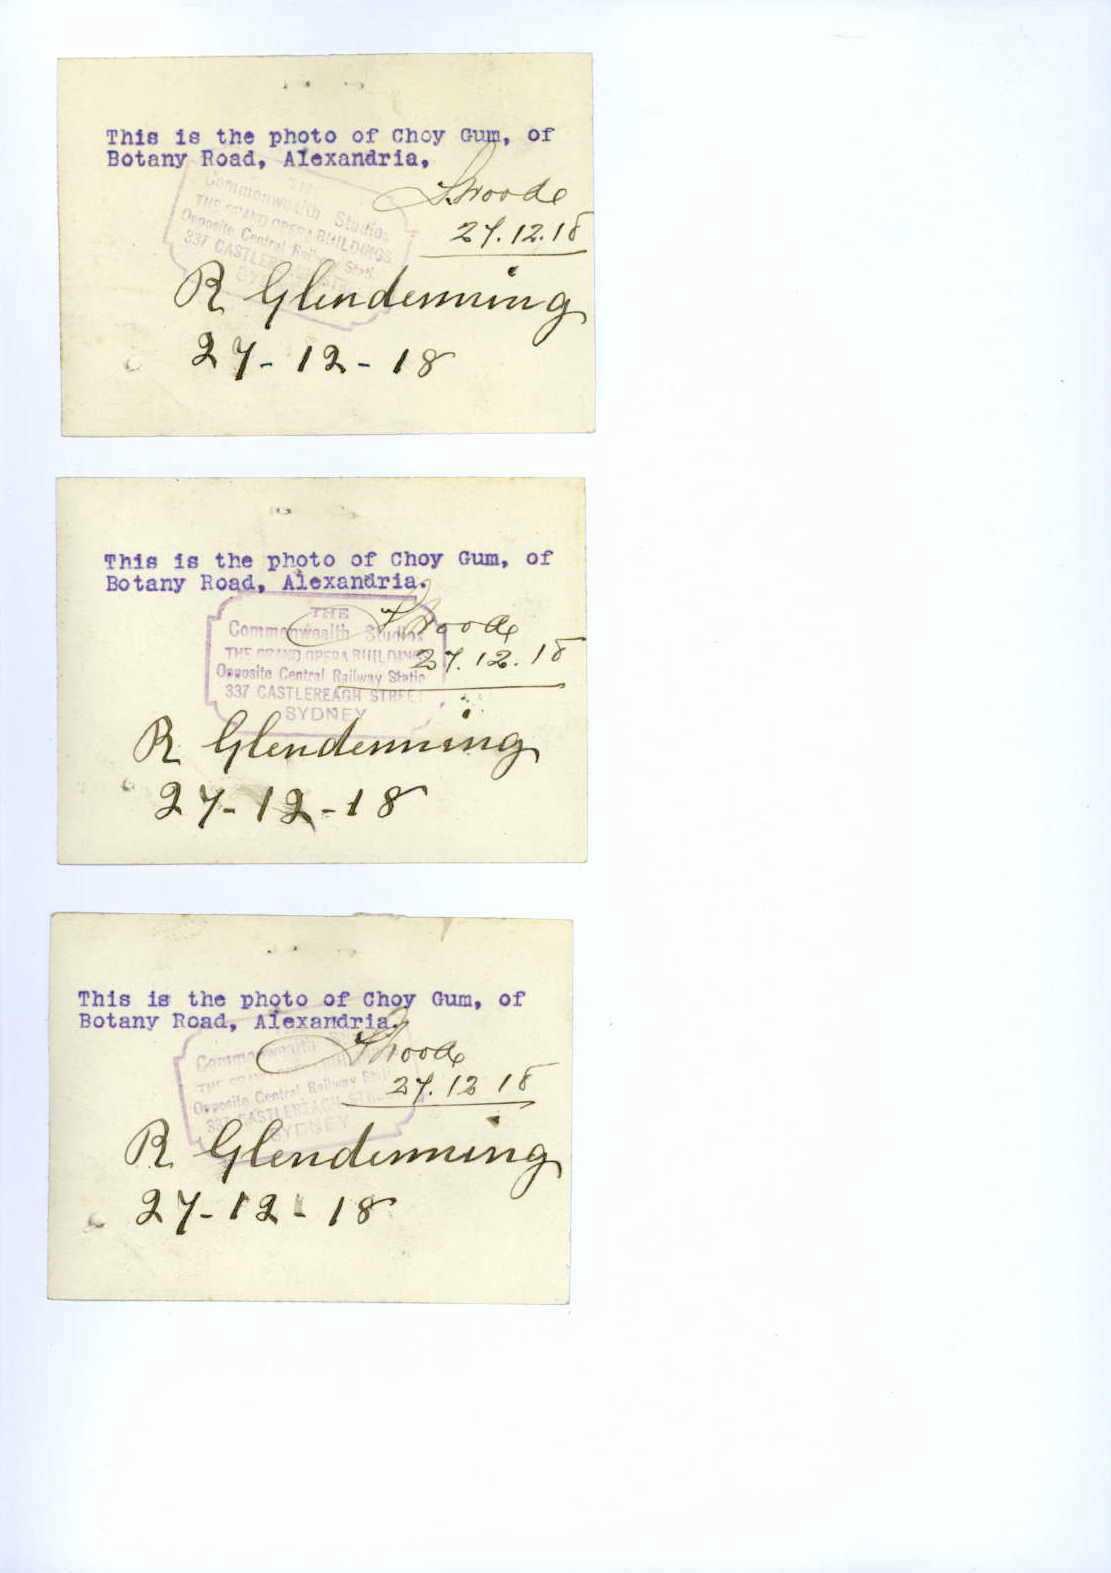 This is the photo of Choy Gum, of
Botany Road, Alexandria,
Commonwealth Studios
THE GRAND OPERA BUILDINGS
Opposite Central Railway Stati
337 CASTLEREAGH
27.12.18
R Glendenning
27-12-18
This is the photo of Choy Gum, of
Botany Road, Alexandria.
THE
Commonwealth Studios
THE GRAND OPERA BUILDINGS
Opposite Central Railway Statio
337 CASTLEREAGH STREET
SYDNEY
27.12.18
R Glendenning
27-12-18
This is the photo of Choy Gum, of
Botany Road, Alexandria.
Commonwealth
Opposite Central Railway Stati
337 CASTLEREAGH STREET
SYDNEY
27.12 18
R Glendenning
27-12-18